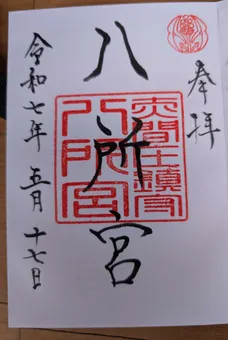 奉拝
八所宮
赤間土鎮守
八所宮
令和七年 五月 十七日